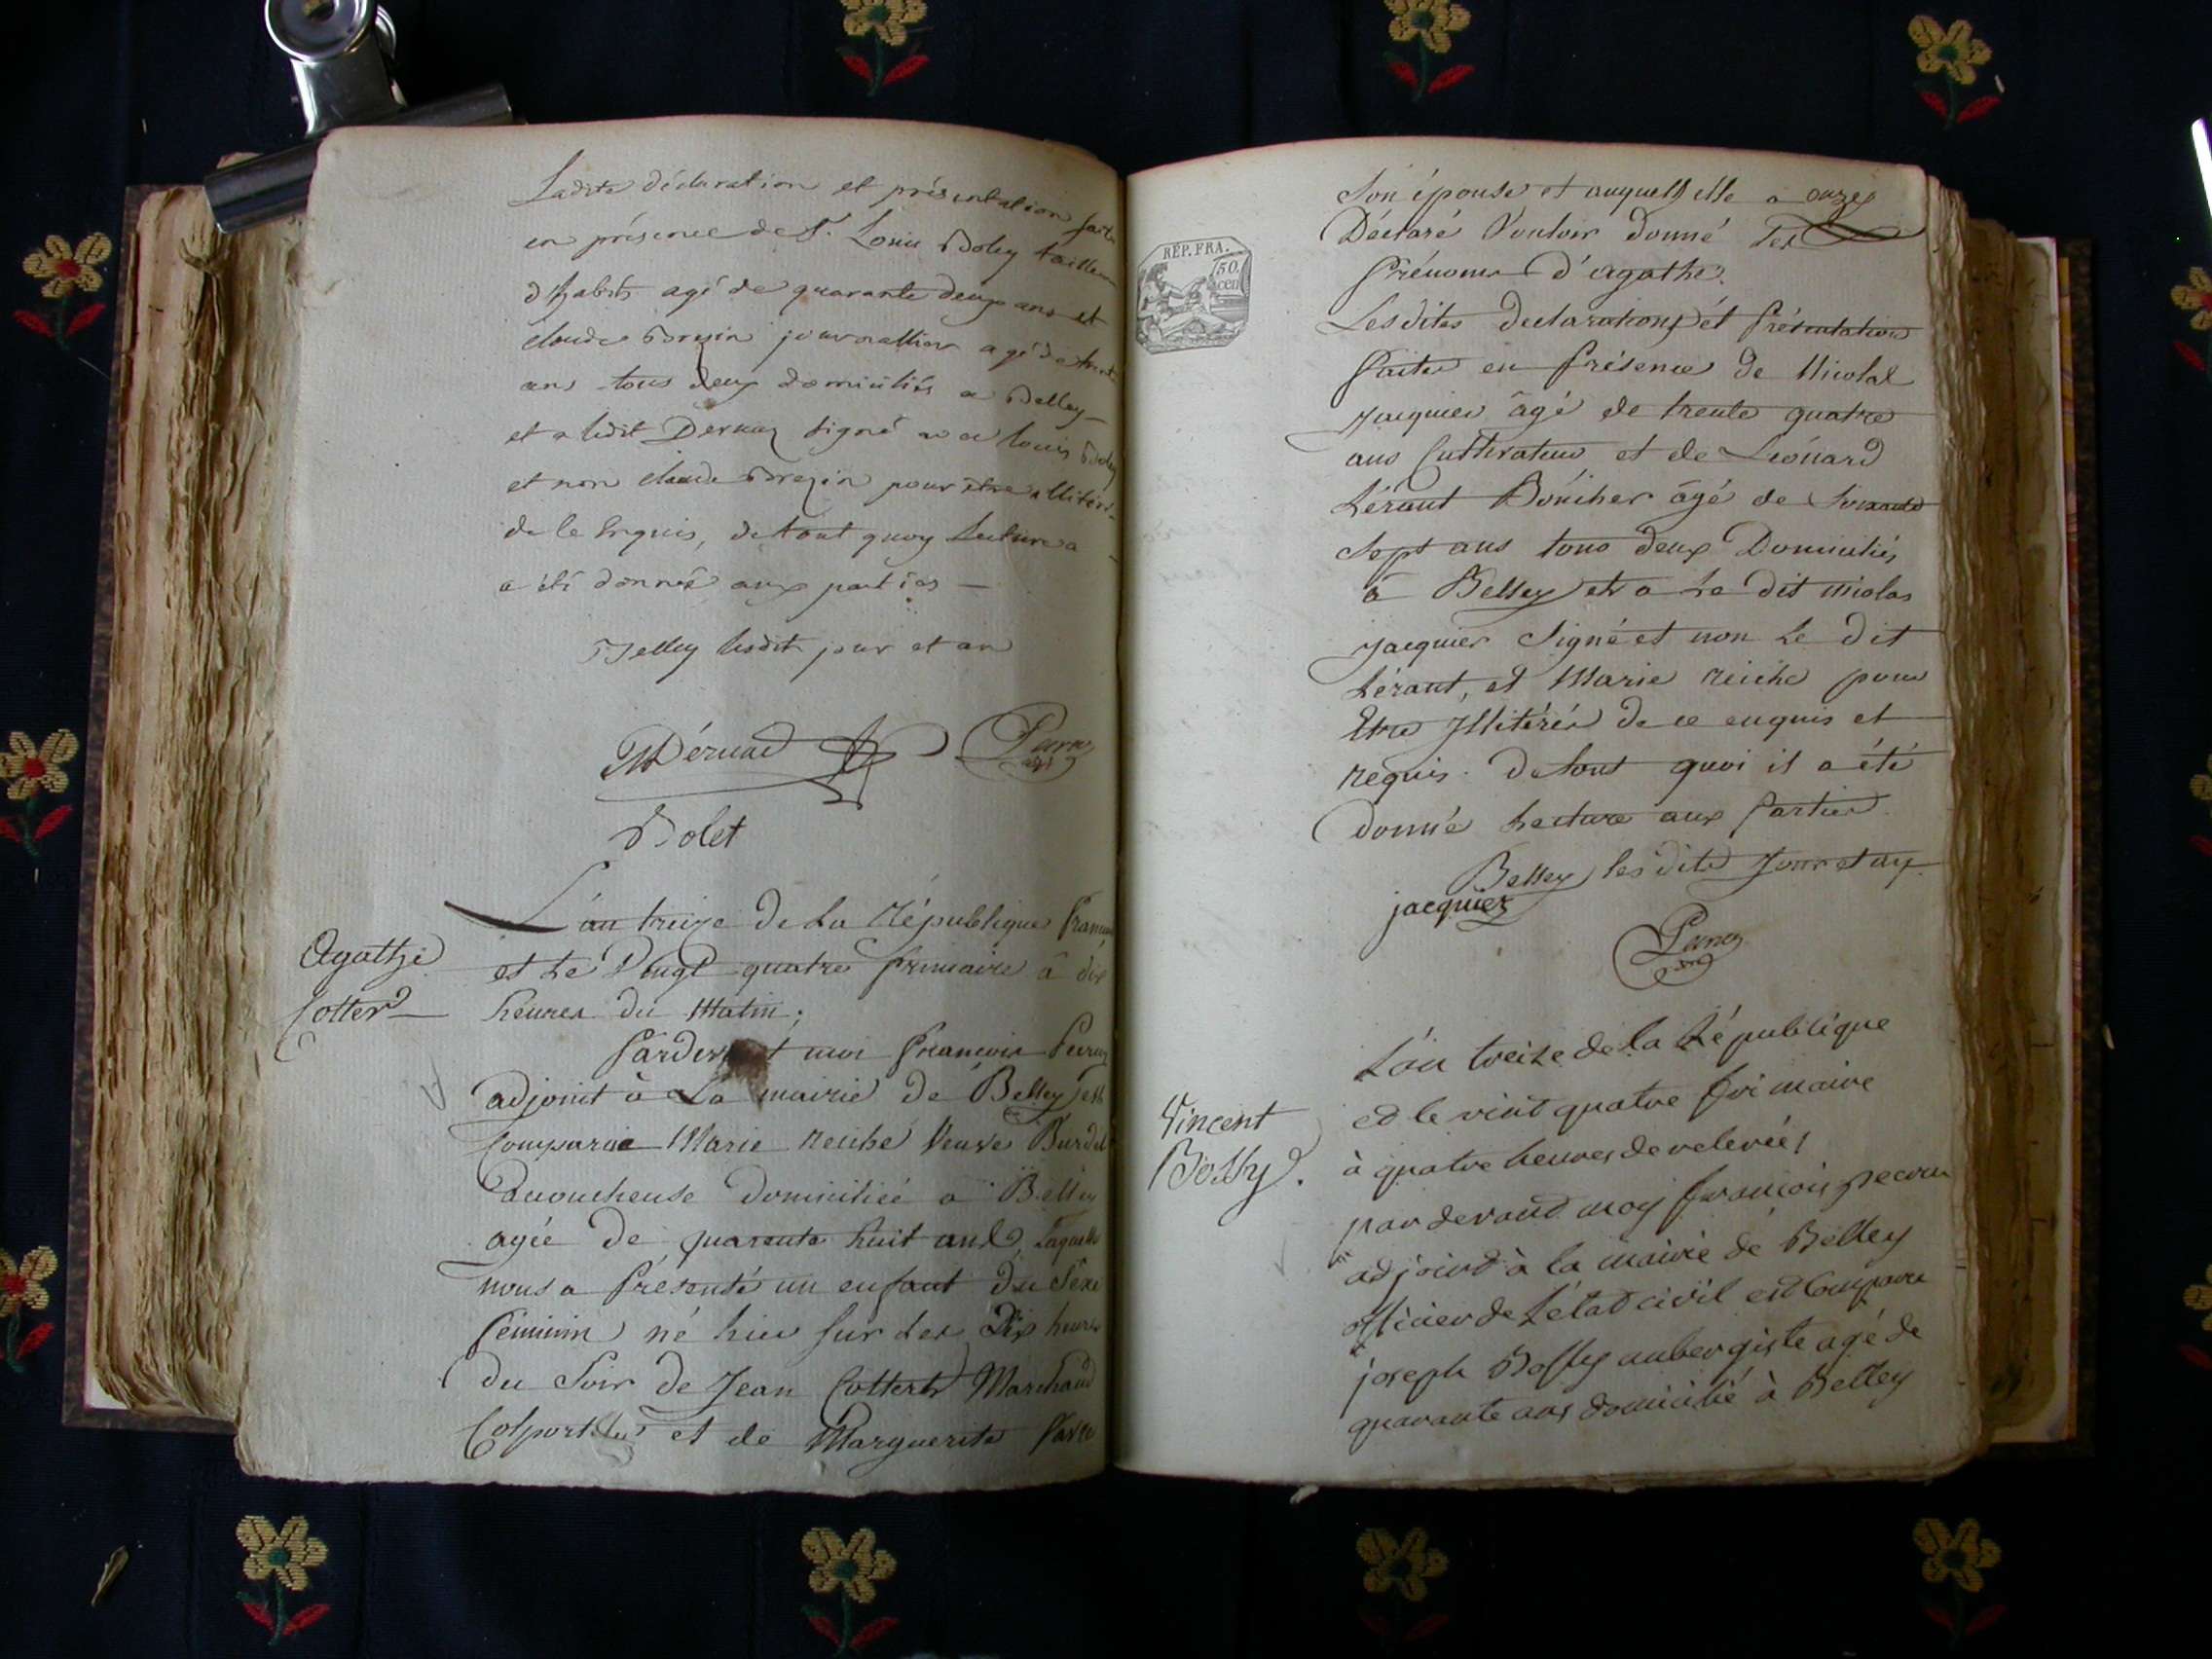 Ladite déclaration et présentation faite
en présence de S.r Louis Boley tailleur
d'habits agé de quarante deux ans et
claude Brezin journallier agé de trente
ans tous deux domiciliés a Belley
et a ledit Dernaz signé avec louis Boley
et non claude Brezin pour être illitéré
de le enquis, de tout quoy lecture a
a été donnée aux parties
Belley lesdits jour et an
Perraz
Bolet
L'an treize de La République française
et Le Vingt quatre frimaire à dix
Agathe
Cotterd
heures du Matin.
Pardevant moi françois Perraz
adjoint à La mairie de Belley est
Comparue Marie reiche Veuve
accoucheuse domiciliée a Belley
agée de quarente huit ans, Laquelle
nous a Présenté un enfant du Sexe
féminin né hier sur Les Dix heures
du Soir de Jean Cotterd Marchand
Colporteur et de Marguerite
Son épouse et auquel elle a
Déclaré Vouloir donné les
Prénoms d'agathe.
RÉP. FRA.
50.
cen
Lesdites declarations et Présentation
faites en Présence de Nicolas
Jacquier âgé de trente quatre
ans Cultivateur et de Léonard
Lérant Boucher âgé de Soixante
Sept ans tous deux Domiciliés
à Belley et a Le dit nicolas
Jacquier Signé et non Le dit
Lérant, et Marie reiche pour
Etre Illitérés de ce enquis et
requis. De tout quoi il a été
donné Lecture aux Parties.
Belley les dits Jour et an
jacquier
Perraz
L'an treize de la République
et le vint quatre frimaire
Vincent
Bolly.
à quatre heures de relevées
par devant moy francois perraz
adjoint à la mairie de Belley
officier de l'état civil est Comparu
joseph Bolly aubergiste agé de
quarante ans domicilié à Belley